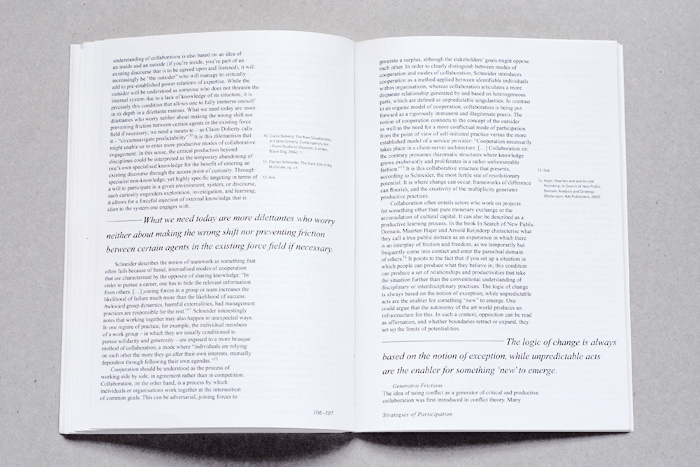 understanding of collaboration is also based on an idea of
an inside and an outside (if you're inside, you're part of an
existing discourse that is to be agreed upon and fostered), it will
increasingly be "the outsider" who will manage to critically
add to pre-established power relations of expertise. While the
outsider will be understood as someone who does not threaten the
internal system due to a lack of knowledge of its structure, it is
precisely this condition that allows one to fully immerse oneself
in its depth in a dilettante manner. What we need today are more
dilettantes who worry neither about making the wrong shift nor
preventing friction between certain agents in the existing force
field if necessary, we need a means to – as Claire Doherty calls
it – "circumnavigate predictability". It is this dilettantism that
might enable us to enter more productive modes of collaborative
engagement. In this sense, the critical production beyond
disciplines could be interpreted as the temporary abandoning of
one's own specialised knowledge for the benefit of entering an
existing discourse through the access point of curiosity. Through
specialist non-knowledge, yet highly specific targeting in terms of
a will to participate in a given environment, system, or discourse,
such curiosity engenders exploration, investigation, and learning;
it allows for a forceful injection of external knowledge that is
alien to the system and engages with.
What we need today are more dilettantes who worry
neither about making the wrong shift nor preventing friction
between certain agents in the existing force field if necessary.
Schneider describes the notion of teamwork as something that
often fails because of banal, internalised modes of cooperation
that are characterised by the opposite of sharing knowledge: "In
order to pursue a career, one has to hide the relevant information
from others. [...] joining forces in a group or team increases the
likelihood of failure much more than the likelihood of success.
Awkward group dynamics, harmful externalities, bad management
practices are responsible for the rest." Schneider interestingly
notes that working together may also happen in unexpected ways.
In one regime of practice, for example, the individual members
of a work group – in which they are usually conditioned to
pursue solidarity and generosity – are exposed to a more brusque
method of collaboration, a mode where "individuals are relying
on each other the more they go after their own interests, mutually
dependent through following their own agendas."
Cooperation should be understood as the process of
working side by side, in agreement rather than in competition.
Collaboration, on the other hand, is a process by which
individuals or organisations work together at the intersection
of common goals. This can be adversarial, joining forces to
106–107
generate a surplus, although the stakeholders' goals might oppose
each other. In order to clearly distinguish between modes of
cooperation and modes of collaboration, Schneider introduces
cooperation as a method applied between identifiable individuals
within organisations, whereas collaboration articulates a more
disparate relationship generated by and based on heterogeneous
parts, which are defined as unpredictable singularities. In contrast
to an organic model of cooperation, collaboration is being put
forward as a rigorously immanent and illegitimate praxis. The
notion of cooperation connects to the concept of the outsider
as well as the need for a more conflictual mode of participation
from the point of view of self-initiated practice versus the more
established model of a service provider: "Cooperation necessarily
takes place in a client-server architecture. [...] Collaboration on
the contrary presumes rhizomatic structures where knowledge
grows exuberantly and proliferates in a rather unforeseeable
fashion." It is this collaborative structure that presents,
according to Schneider, the most fertile site of revolutionary
potential. It is where change can occur, frameworks of difference
can flourish, and the creativity of the multiplicity generates
productive practices.
Collaboration often entails actors who work on projects
for something other than pure monetary exchange or the
accumulation of cultural capital. It can also be described as a
productive learning process. In the book In Search of New Public
Domain, Maarten Hajer and Arnold Reijndorp characterise what
they call a true public domain as an experience in which there
is an interplay of friction and freedom, as we temporarily but
frequently come into contact and enter the parochial domain
of others. It points to the fact that if you set up a situation in
which people can produce what they believe in, this condition
can produce a set of relationships and productivities that take
the situation further than the conventional understanding of
disciplinary or interdisciplinary practices. The logic of change
is always based on the notion of exception, while unpredictable
acts are the enabler for something "new" to emerge. One
could argue that the autonomy of the art world produces an
infrastructure for this. In such a context, opposition can be read
as affirmation, and whether boundaries retract or expand, they
set up the limits of potentialities.
The logic of change is always
based on the notion of exception, while unpredictable acts
are the enabler for something 'new' to emerge.
Generative Frictions
The idea of using conflict as a generator of critical and productive
collaboration was first introduced in conflict theory. Many
Strategies of Participation